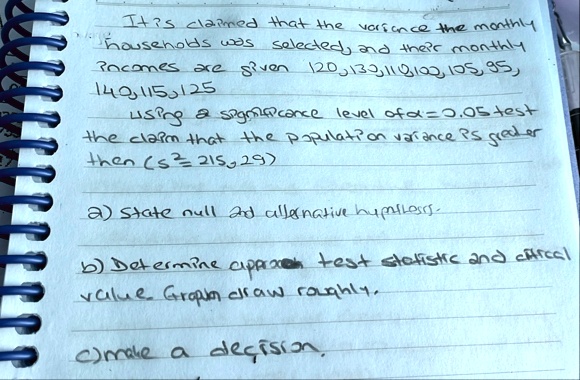 It is claimed that the variance the monthly
households was selected, and their monthly
incomes are given 120, 130, 110, 100, 105, 95,
140, 115, 125
using a significance level of α = 0.05 test
the claim that the population variance is greater
then (s² = 215,29)
a) State null and alternative hypothesis.
b) Determine test statistic and critical
value. Graph draw roughly.
c) make a decision.